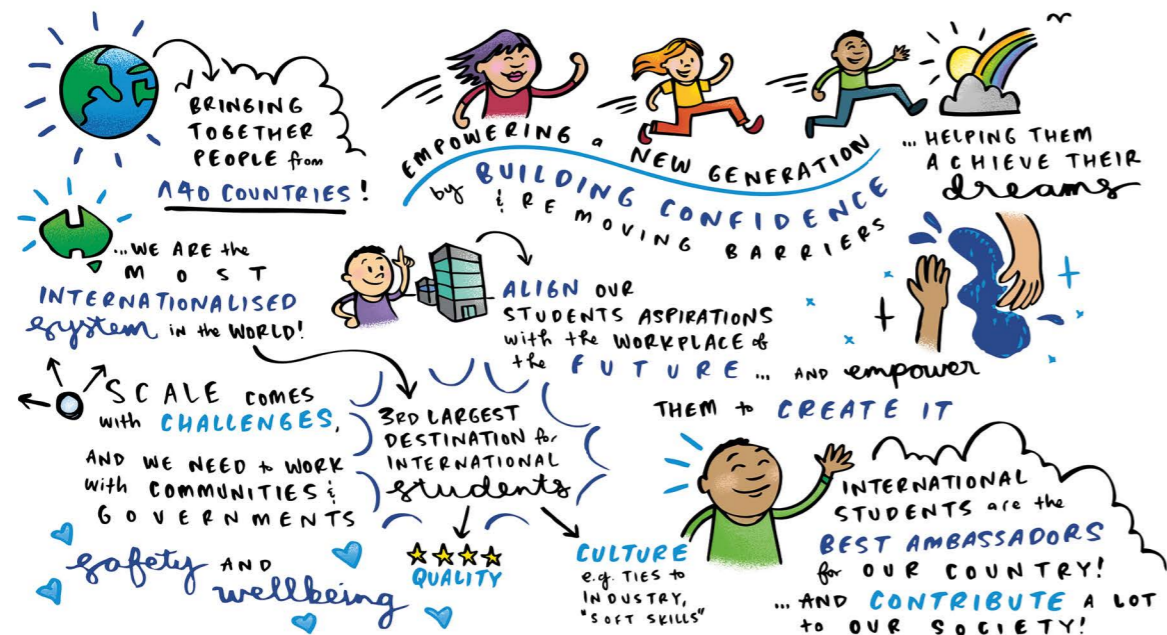 BRINGING
TOGETHER
PEOPLE from
140 COUNTRIES!
EMPOWERING a NEW GENERATION
by BUILDING CONFIDENCE
& REMOVING BARRIERS
... HELPING THEM
ACHIEVE THEIR
dreams
...WE ARE the
MOST
INTERNATIONALISED
system in the WORLD!
ALIGN OUR
STUDENTS ASPIRATIONS
with the WORKPLACE of
the FUTURE ... AND empower
THEM to CREATE IT
SCALE COMES
with CHALLENGES,
AND WE NEED to WORK
with COMMUNITIES &
GOVERNMENTS
safety AND
wellbeing
3RD LARGEST
DESTINATION for
INTERNATIONAL
students
QUALITY
CULTURE
e.g. TIES to
INDUSTRY,
"SOFT SKILLS"
INTERNATIONAL
STUDENTS are the
BEST AMBASSADORS
for OUR COUNTRY!
... AND CONTRIBUTE A LOT
to OUR SOCIETY!